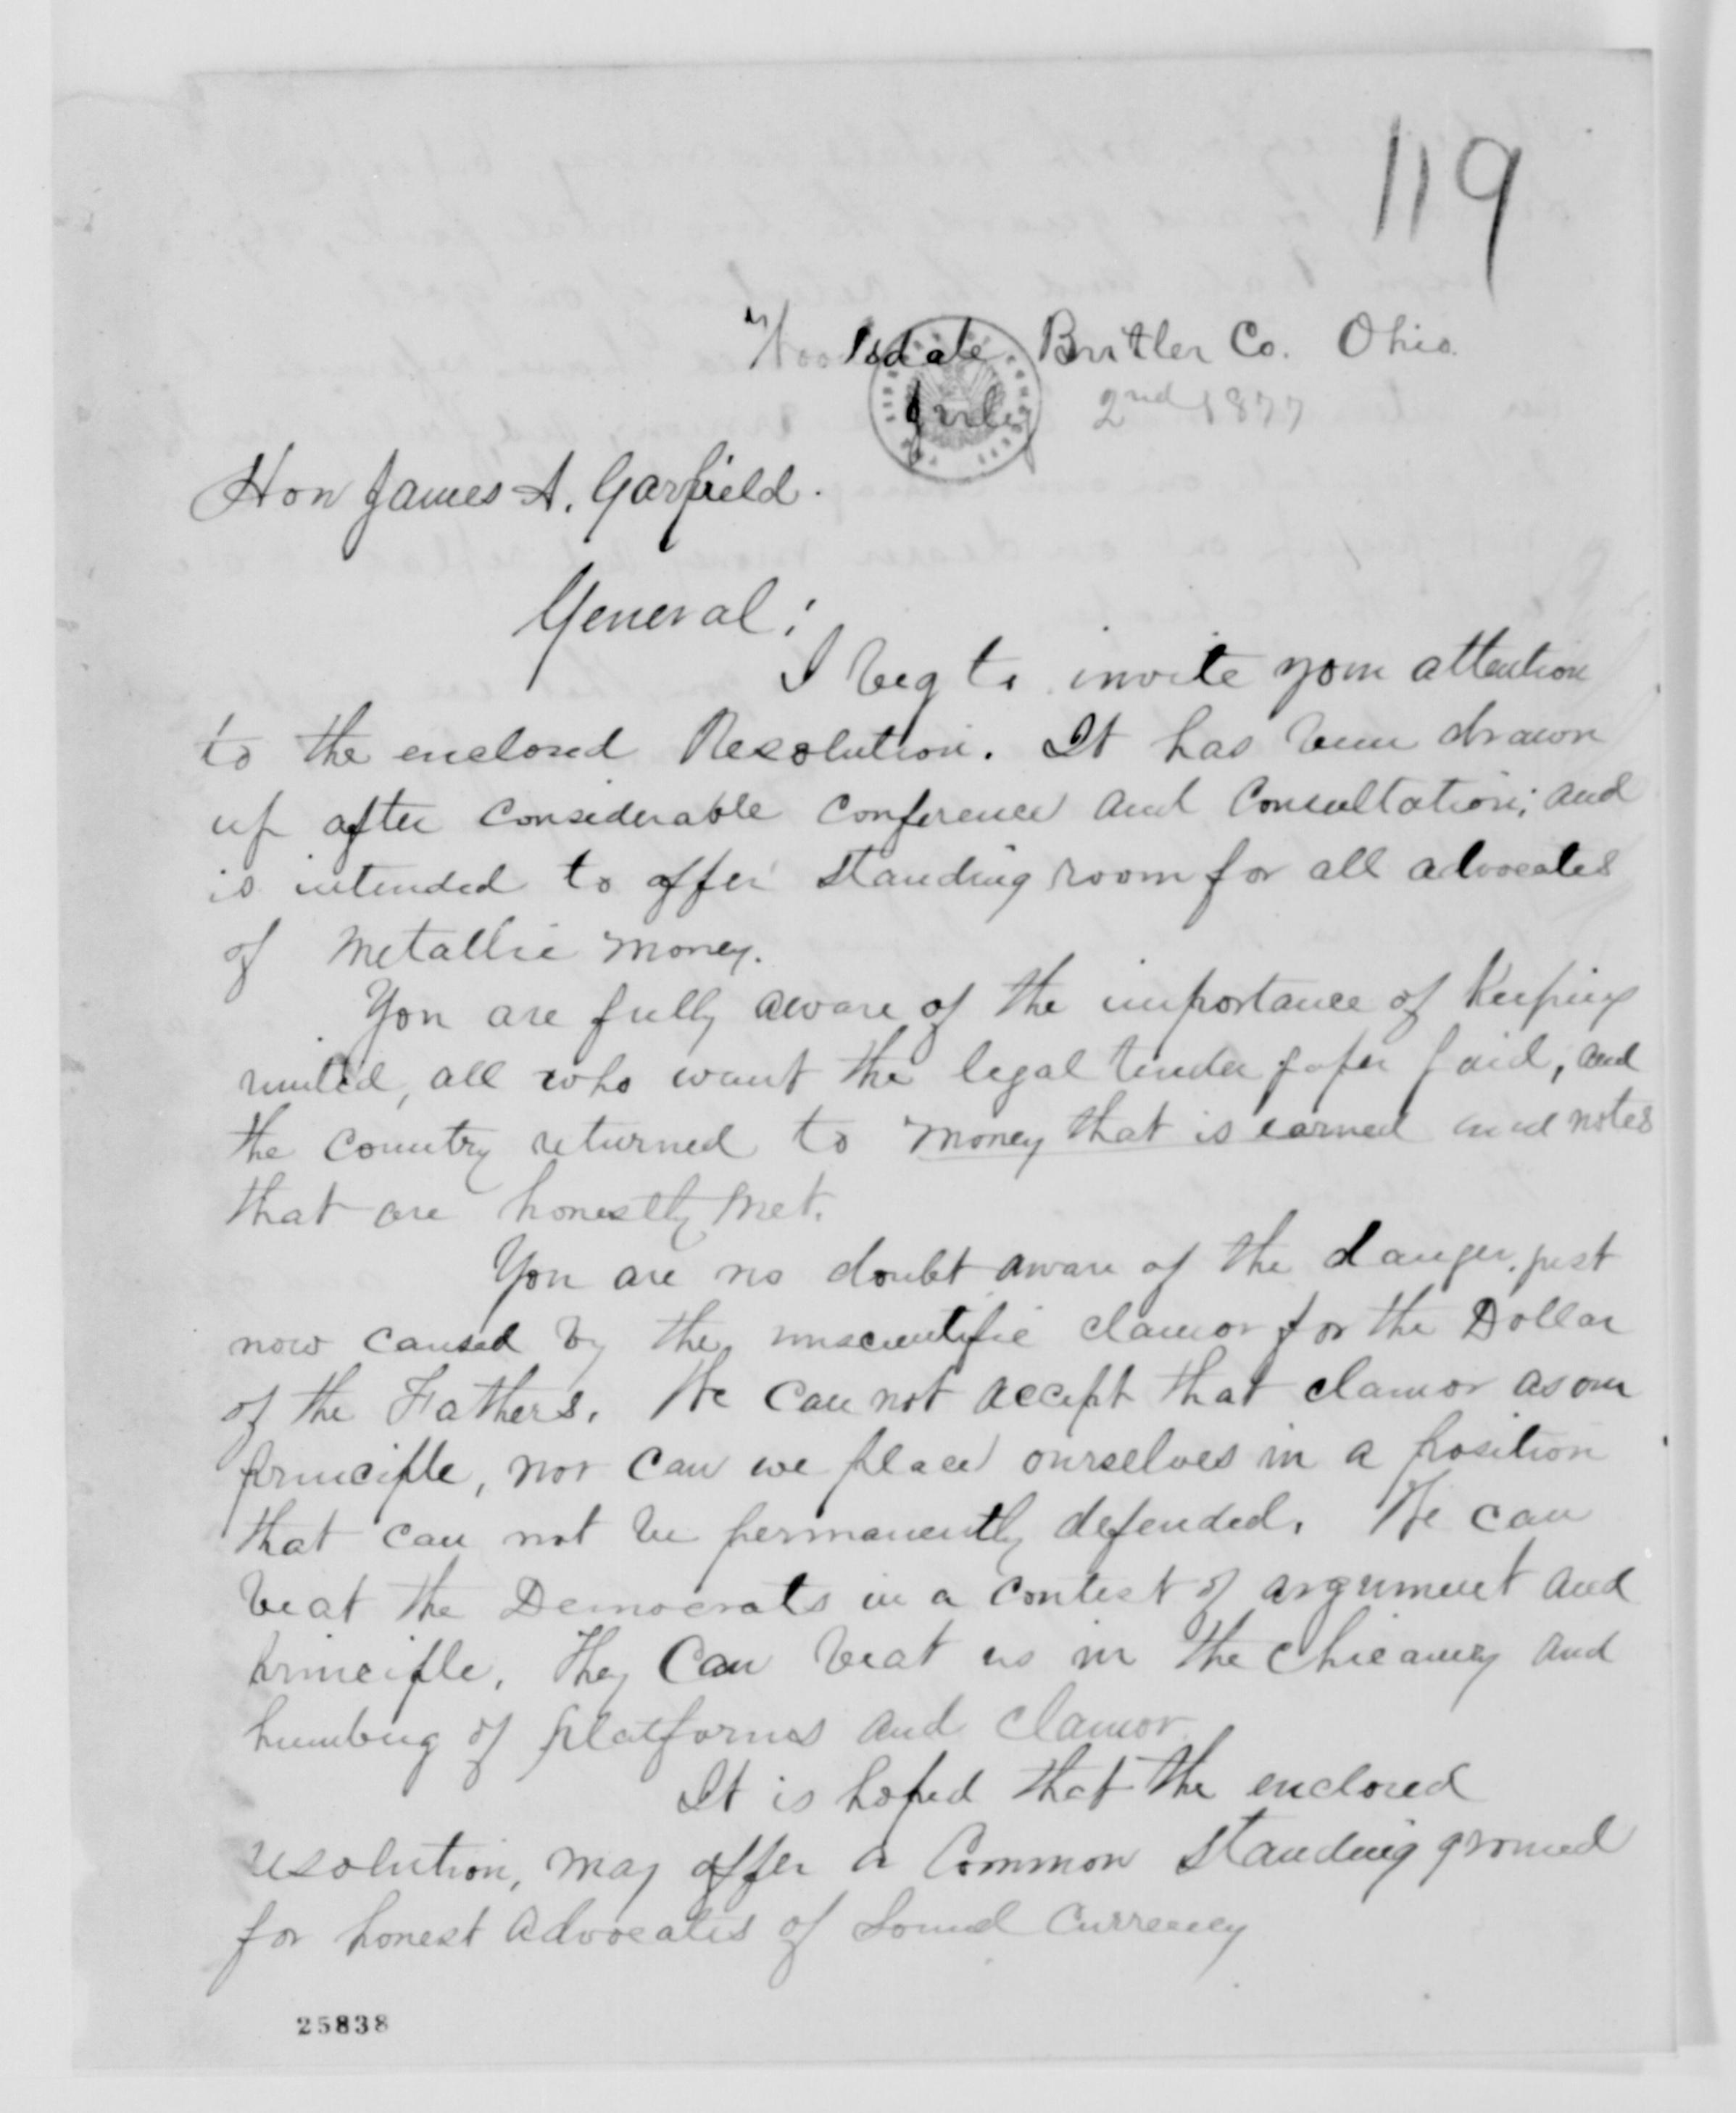 119
Woodsdale Butler Co. Ohio.
July 2nd 1877
Hon James A. Garfield.
General:
I beg to invite your attention
to the enclosed Resolution. It has been drawn
up after considerable conference and consultation; and
is intended to offer standing room for all advocates
of Metallic money.
You are fully aware of the importance of keeping
united, all who want the legal tender paper paid, and
the country returned to money that is earned and notes
that are honestly met.
You are no doubt aware of the danger just
now caused by the unscientific clamor for the Dollar
of the Fathers. We can not accept that clamor as our
principle, nor can we place ourselves in a position
that can not be permanently defended. We can
beat the Democrats in a contest of argument and
principle. They can beat us in the chicanery and
humbug of platforms and clamor.
It is hoped that the enclosed
resolution, may offer a common standing ground
for honest advocates of sound currency
25838